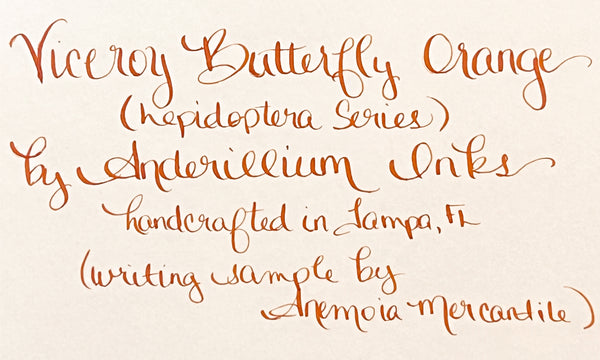 Viceroy Butterfly Orange
(Lepidoptera Series)
by Anderillium Inks
handcrafted in Tampa, FL
(writing sample by
Anemoia Mercantile)